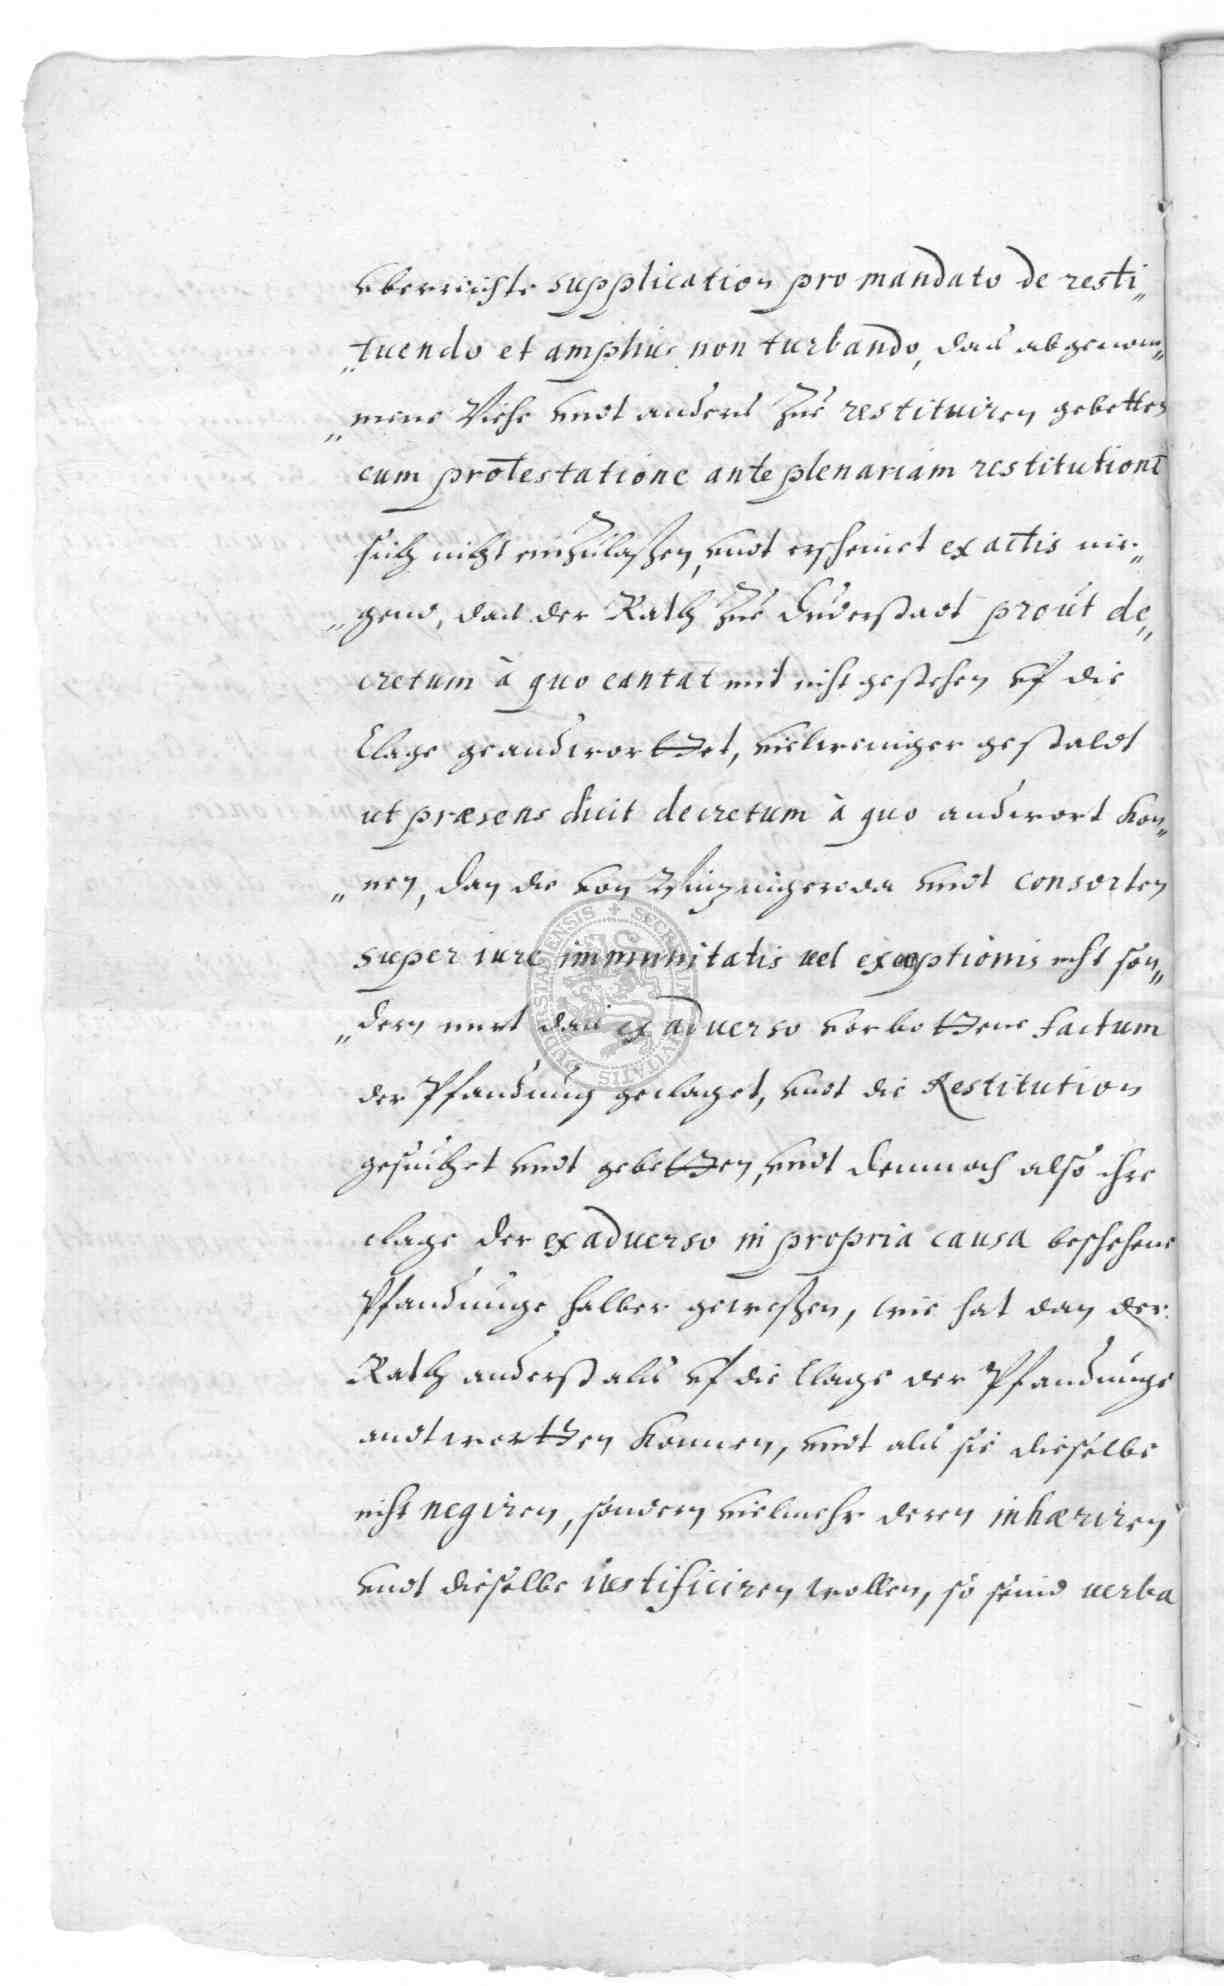 vberreichte supplication pro mandato de resti„
„tuendo et amplius non turbando, das abgenom„
„mene Viehe vndt anders zue restituiren gebetten
cum protestatione ante plenariam restitutione
sich nicht einzulaßen, vndt erscheinet ex actis nir„
„gend, das der Rath zue Duderstadt prout de„
cretum à quo cantat mit nicht gestehen vf die
Clage geandtworttet, vielweniger gestaldt
ut præsens dicit decretum à quo andtwort kon„
„nen, dan die von Wintzingeroda vndt consorten
super iure immunitatis uel exemptionis nicht son„
„dern nurt das ex aduerso verbottene factum
der Pfandtung geclaget, vndt die Restitution
gesuchet vndt gebetten, vndt demnach also ihre
clage der ex aduerso in propria causa beschehene
Pfandtunge halber geweßen, wie hat dan der
Rath anderst als vf die Clage der Pfandtunge
andtwortten konnen, vndt als sie dieselbe
nicht negiren, sondern vielmehr deren inhæriren
vndt dieselbe iustificiren wollen, so seind uerba